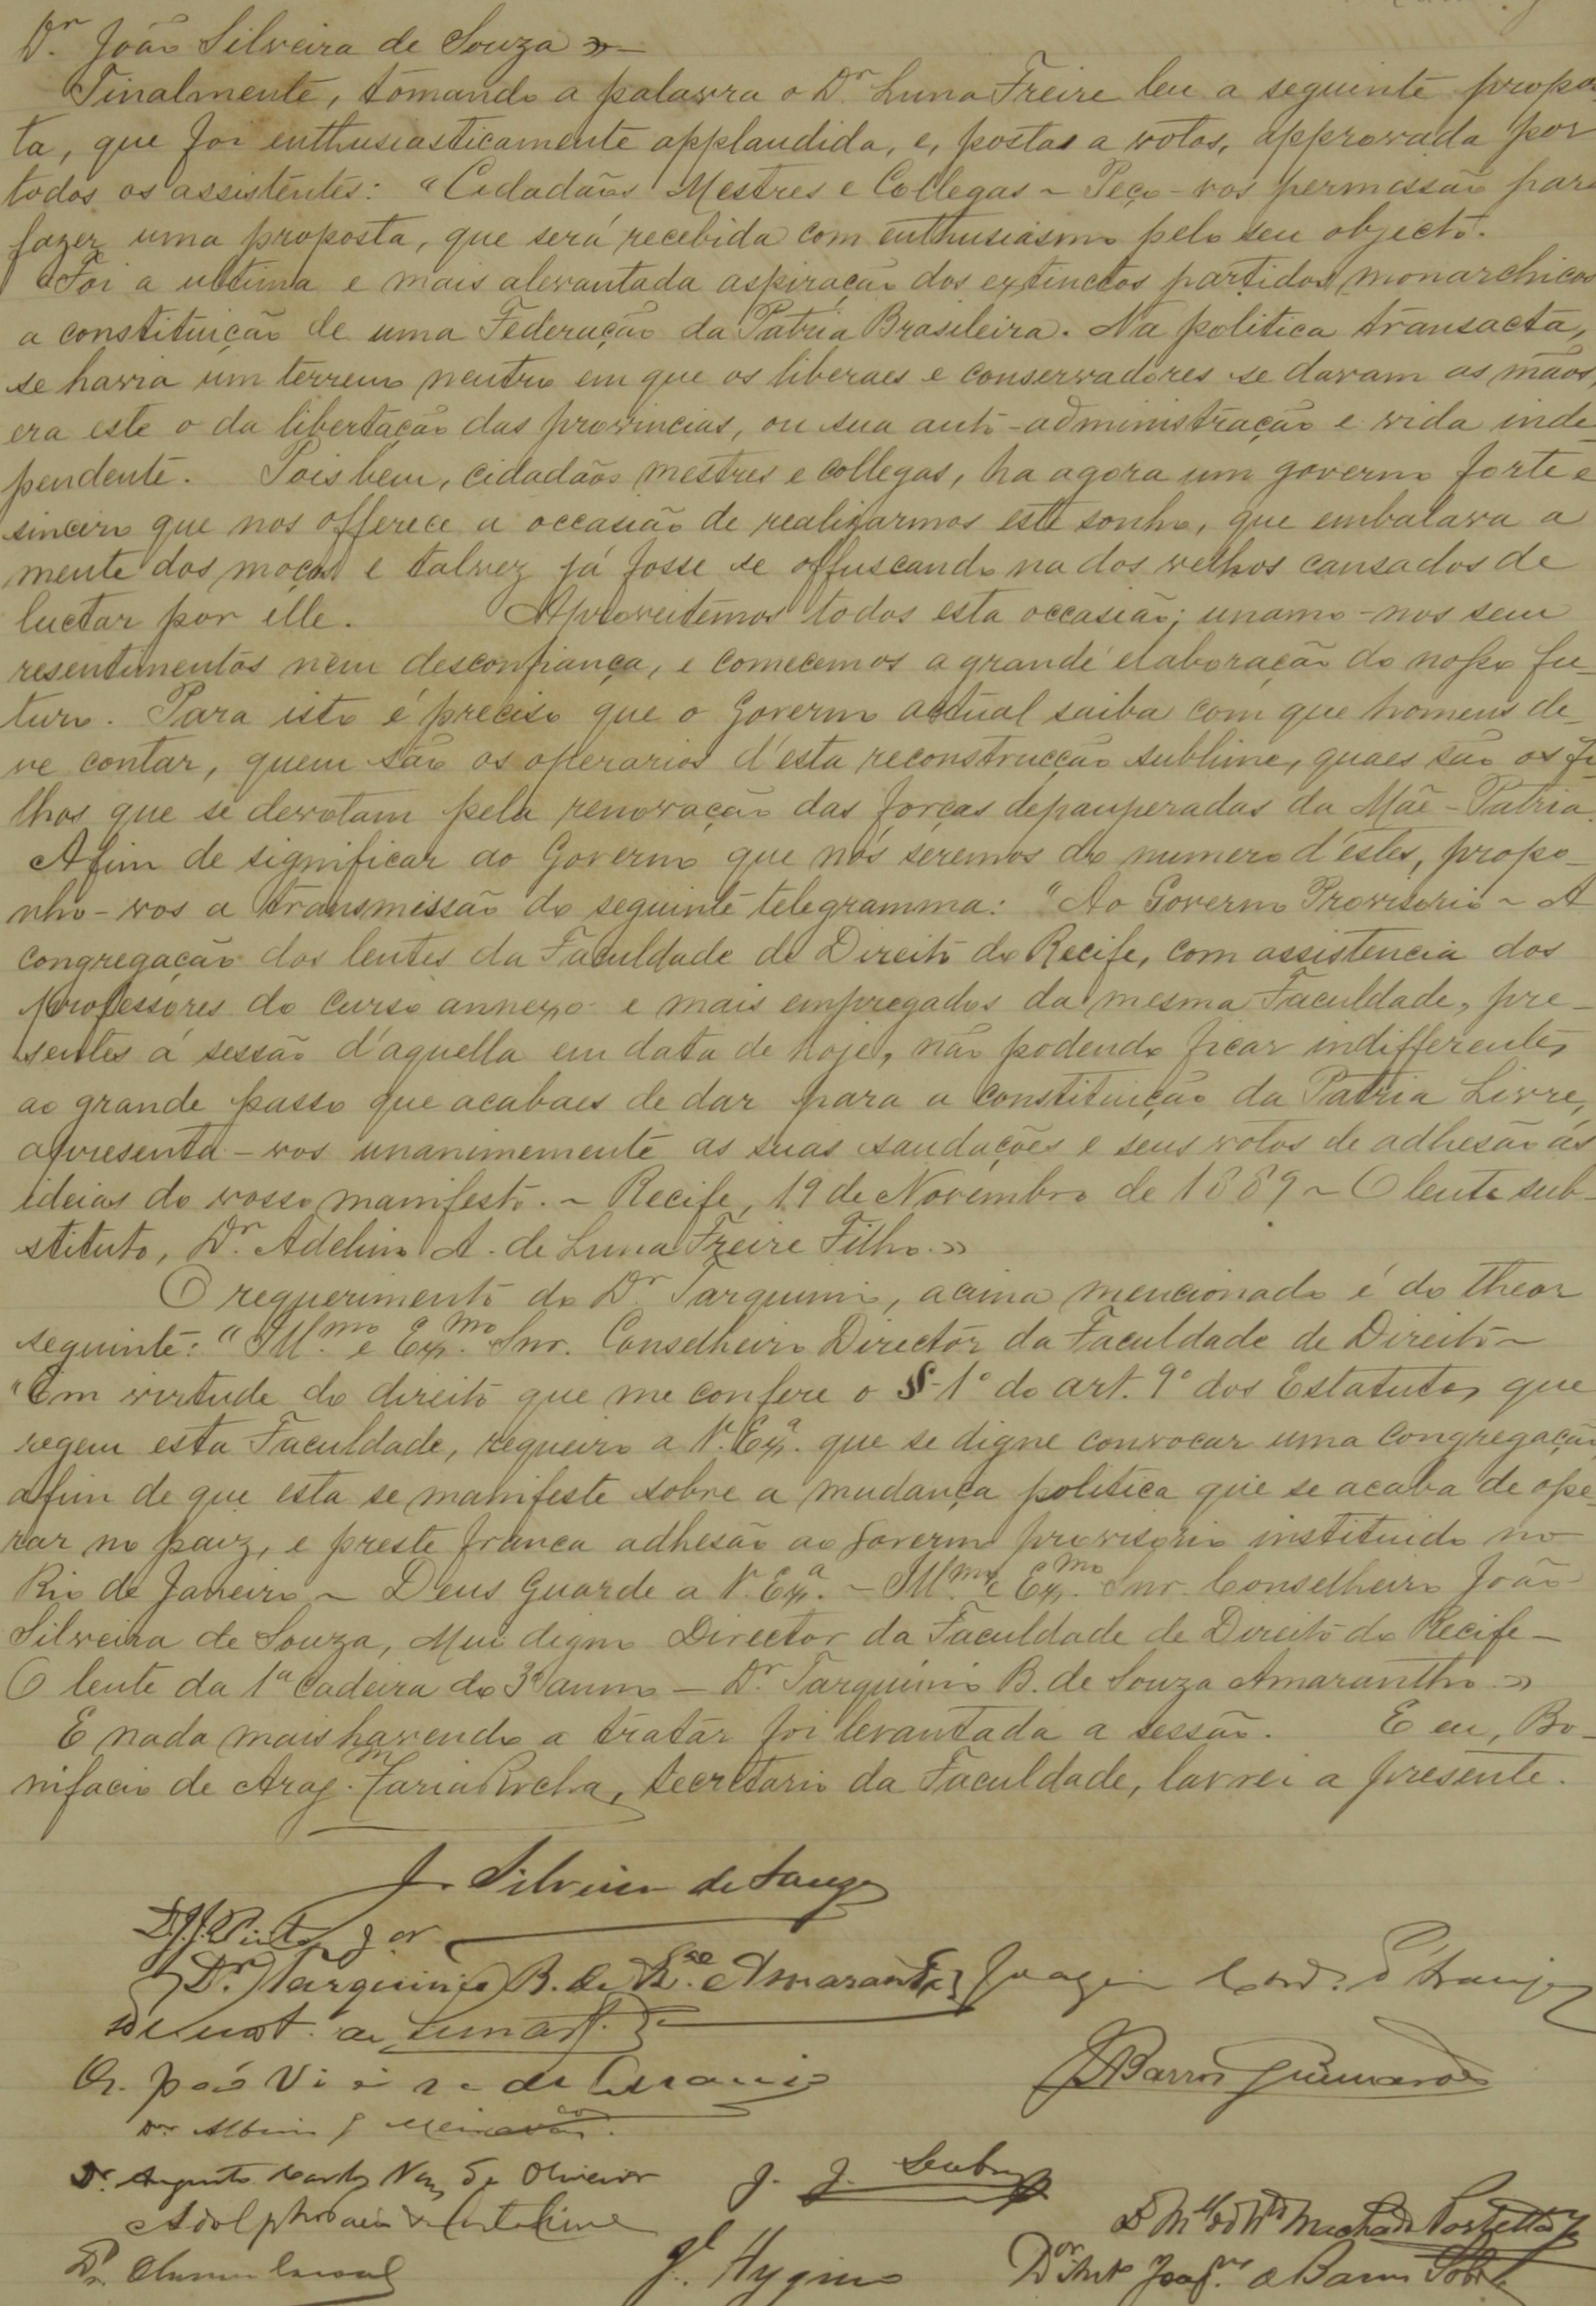 Dr. João Silveira de Souza »—
Finalmente, tomando a palavra o Dr. Luna Freire leu a seguinte propos
ta, que foi enthusiasticamente applaudida, e, postas a votos, approvada por
todos os assistentes: "Cidadãos Mestres e Collegas ~ Peço-vos permissão para
fazer uma proposta, que será recebida com enthusiasmo pelo seu objecto.
"Foi a ultima e mais alevantada aspiração dos extinctos partidos monarchicos
a constituição de uma Federação da Patria Brasileira. Na politica transacta,
se havia um terreno neutro em que os liberaes e conservadores se davam as mãos,
era este o da libertação das provincias, ou sua auto-administração e vida inde-
pendente. Pois bem, cidadãos mestres e collegas, ha agora um governo forte e
sincero que nos offerece a occasião de realizarmos este sonho, que embalava a
mente dos moços e talvez já fosse se offuscando na dos velhos cansados de
luctar por elle. Aproveitemos todos esta occasião; unamo-nos sem
resentimentos nem desconfiança, e comecemos a grande elaboração do nosso fu-
turo. Para isto é preciso que o Governo actual saiba com que homens de-
ve contar, quem são os operarios d'esta reconstrucção sublime, quaes são os fi-
lhos que se devotam pela renovação das forças depauperadas da Mãe-Patria.
Afim de significar ao Governo que nós seremos do numero d'estes, propo-
nho-vos a transmissão do seguinte telegramma: "Ao Governo Provisorio ~ A
congregação dos lentes da Faculdade de Direito do Recife, com assistencia dos
professores do curso annexo e mais empregados da mesma Faculdade, pre-
sentes á sessão d'aquella em data de hoje, não podendo ficar indifferentes
ao grande passo que acabaes de dar para a constituição da Patria Livre,
apresenta-vos unanimemente as suas saudações e seus votos de adhesão ás
ideias do vosso manifesto. ~ Recife, 19 de Novembro de 1889 ~ O lente sub-
stituto, Dr. Adelino A. de Luna Freire Filho.»
O requerimento do Dr. Tarquinio, acima mencionado é do theor
seguinte: "Illmo. e Exmo. Snr. Conselheiro Director da Faculdade de Direito ~
"Em virtude do direito que me confere o § 1º do art. 9º dos Estatutos que
regem esta Faculdade, requeiro a V. Exª. que se digne convocar uma congregação,
afim de que esta se manifeste sobre a mudança politica que se acaba de ope-
rar no paiz, e preste franca adhesão ao governo provisorio instituido no
Rio de Janeiro ~ Deus Guarde a V. Exª. ~ Illmo. e Exmo. Snr. Conselheiro João
Silveira de Souza, Mui digno Director da Faculdade de Direito do Recife —
O lente da 1ª cadeira do 3º anno — Dr. Tarquinio B. de Souza Amarantho.»
E nada mais havendo a tratar foi levantada a sessão. E eu, Bo-
nifacio de Arag. Faria Rocha, secretario da Faculdade, lavrei a presente.
J. Silveira de Souza
Dr. J.J. Pinto Jor.
Dr. Tarquinio B. de Sza. Amarantho
Dr. João Vieira de Araujo
J Barros Guimarães
Dr. Albino
Dr. Augusto Carlos Vaz de Oliveira
J. J. Seabra
Dr. Machado Portella Jr
Dr. Clovis
J. Hygino
Barros Sobrº